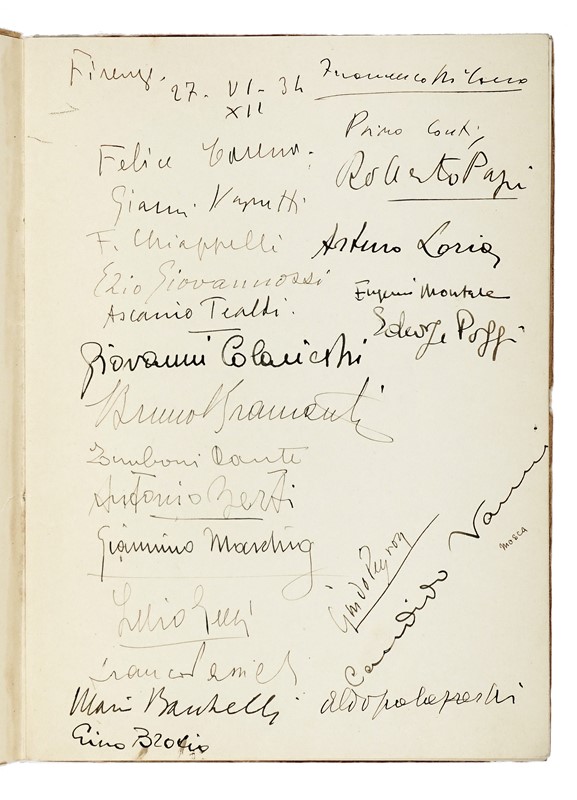 Firenze. 27 - VI - 34
XII
Felice Carena.
Gianni Vagnetti
F. Chiappelli
Ezio Giovannozzi
Ascanio Tealdi.
Giovanni Colacicchi
Bruno Bramanti
Zamboni Dante
Antonio Berti
Giannino Marchig
Franco
Mario
Gino Brosio
Francesco
Primo Conti
Roberto Papi
Arturo Loria
Eugenio Montale
George Poggi
Guido Peyron
Candido Vanni
MOSCA
aldo palazzeschi